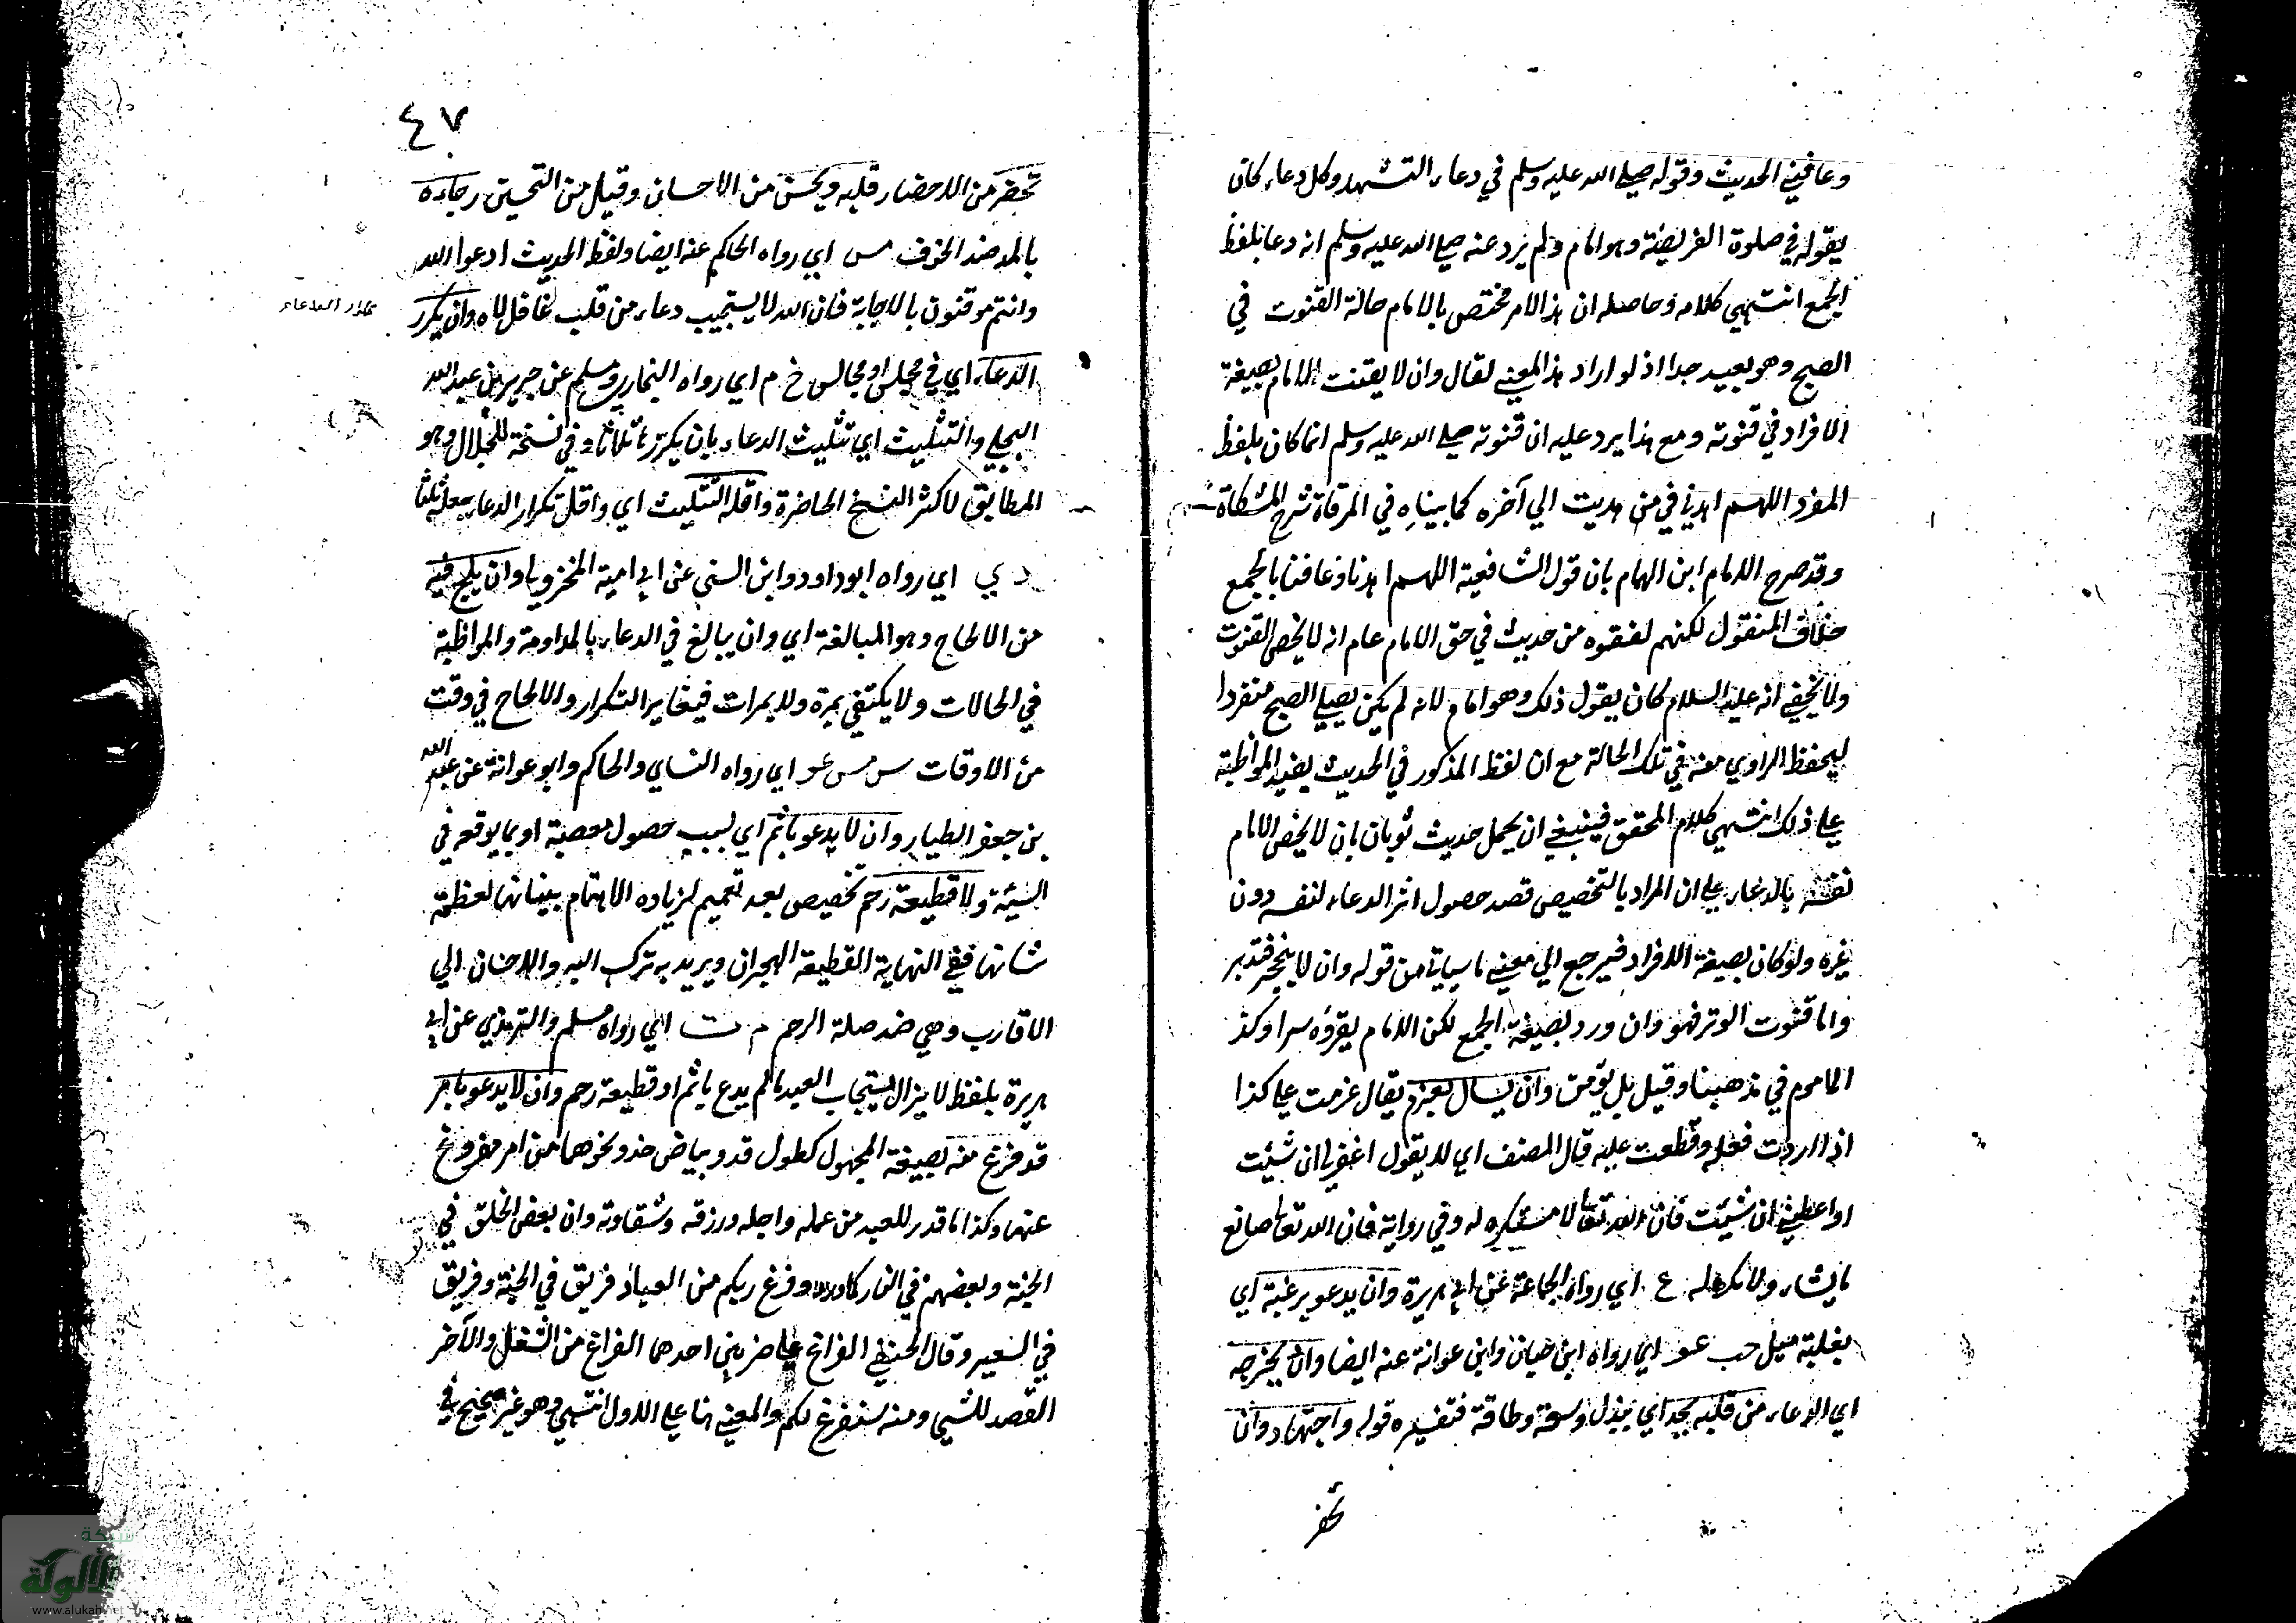 وعافني الحديث وقوله صلى الله عليه وسلم في دعاء التشهد وكل دعاء كان
يقوله في صلوة الفريضة وهو امام ولم يرد عنه صلى الله عليه وسلم انه دعا بلفظ
الجمع انتهى كلامه وحاصله ان هذا الامر مختص بالامام حالة القنوت في
الصبح وهو بعيد جدا اذ لو اراد هذا المعنى لقال وان لا يقنت الامام بصيغة
الافراد في قنوته ومع هذا يرد عليه ان قنوته صلى الله عليه وسلم انما كان بلفظ
المفرد اللهم اهدني في من هديت الي آخره كما بيناه في المرقاة شرح المشكاة
وقد صرح الامام ابن الهمام بان قول الشافعية اللهم اهدنا وعافنا بالجمع
خلاف المنقول لكنهم لفقوه من حديث في حق الامام عام انه لا يخص القنوت
ولا يخفى انه عليه السلام كان يقول ذلك وهو امام لانه لم يكن يصلي الصبح منفردا
ليحفظ الراوي منه في تلك الحالة مع ان لفظ المذكور في الحديث يفيد المواظبة
على ذلك انتهى كلام المحقق فينبغي ان يحمل حديث ثوبان بان لا يخص الامام
نفسه بالدعاء على ان المراد بالتخصيص قصد حصول اثر الدعاء لنفسه دون
غيره ولو كان بصيغة الافراد فيرجع الي معنى ما سيأتي من قوله وان لا يتحجر فتدبر
واما قنوت الوتر فهو وان ورد بصيغة الجمع لكن الامام يقرؤه سرا وكذا
الماموم في مذهبنا وقيل بل يؤمن وان يسال بعزم يقال عزمت على كذا
اذا اردت فعله وقطعت عليه قال المصنف اي لا يقول اغفر لي ان شئت
او اعطني ان شئت فان الله تعالى لا مستكره له وفي رواية فان الله تعالى صانع
ما يشاء ولا مكره له ع اي رواه الجماعة عن ابي هريرة وان يدعو برغبة اي
بغلبة ميل حب عو اي رواه ابن حبان وابن عوانة عنه ايضا وان يخرجه
اي الدعاء من قلبه بجد اي ببذل وسعة وطاقة فتفسيره قوله واجتهاد وان
تحضر
٤٧
تحضر من الاحضار قلبه ويحسن من الاحسان وقيل من التحسين رجاءه
بالمد ضد الخوف مس اي رواه الحاكم عنه ايضا ولفظ الحديث ادعوا الله
وانتم موقنون بالاجابة فان الله لا يستجيب دعاء من قلب غافل لاه وان يكرر
تكرار الدعاء
الدعاء اي في مجلس او مجالس خ م اي رواه البخاري ومسلم عن جرير بن عبد الله
البجلي والتثليث اي تثليث الدعاء بان يكرر ثلاثا وفي نسخة للجلال وهو
المطابق لاكثر النسخ الحاضرة واقله التثليث اي واقل تكرار الدعاء جعله ثلثا
د ي اي رواه ابو داود وابن السني عن ابي امية المخزومي وان يلح فيه
من الالحاح وهو المبالغة اي وان يبالغ في الدعاء بالمداومة والمواظبة
في الحالات ولا يكتفي بمرة ولا بمرات فيغاير التكرار والالحاح في وقت
من الاوقات س مس عو اي رواه النساي والحاكم وابو عوانة عن عبد الله
بن جعفر الطيار وان لا يدعو باثم اي بسبب حصول معصية او بما يوقعه في
السيئة ولا قطيعة رحم تخصيص بعد تعميم لزيادة الاهتمام ببيانها لعظمة
شانها ففي النهاية القطيعة الهجران ويريد به ترك البر والاحسان الي
الاقارب وهي ضد صلة الرحم م ت اي رواه مسلم والترمذي عن ابي
هريرة بلفظ لا يزال يستجاب العبد ما لم يدع باثم او قطيعة رحم وان لا يدعو بامر
قد فرغ منه بصيغة المجهول كطول قد وبياض خد ونحوهما من امر مفروغ
عنها وكذا ما قدر للعبد من عمله واجله ورزقه وشقاوته وان بعض الخلق في
الجنة وبعضهم في النار كما ورد وفرغ ربكم من العباد فريق في الجنة وفريق
في السعير وقال الحنفي الفراغ على ضربين احدهما الفراغ من الشغل والآخر
القصد للشي ومنه سنفرغ لكم والمعنى هنا على الاول انتهى وهو غير صحيح في
شبكة
الألوكة
www.alukah.net